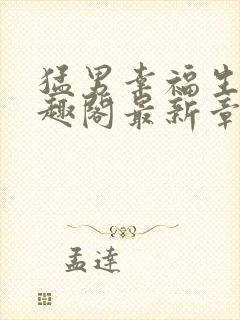 猛男幸福生
趣阁最新章
孟達